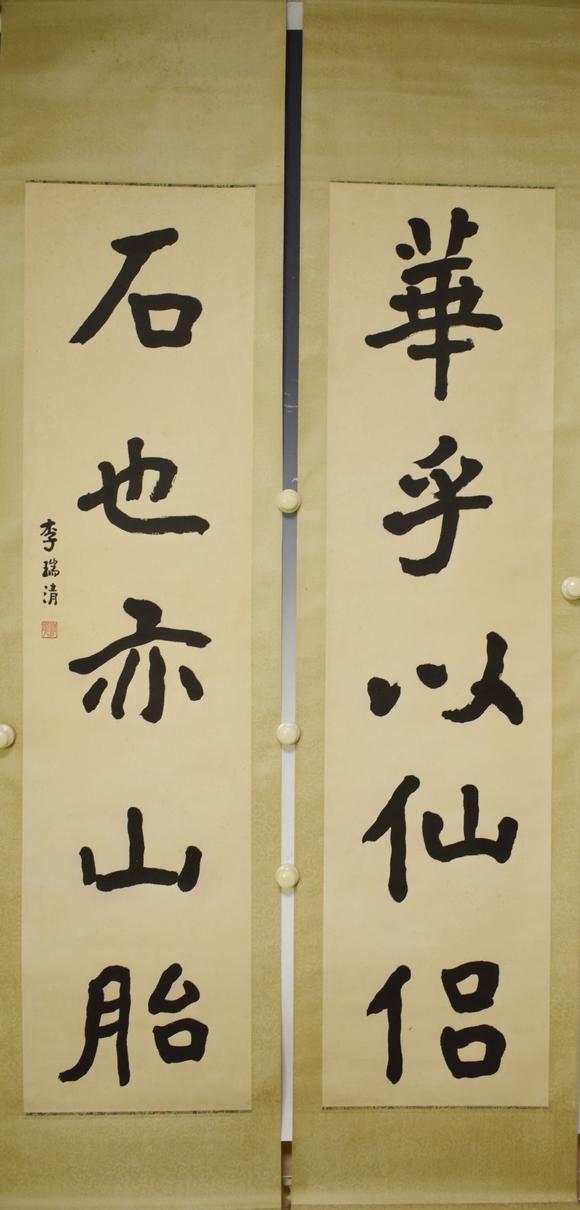 華乎以仙侶
石也亦山胎
李瑞清